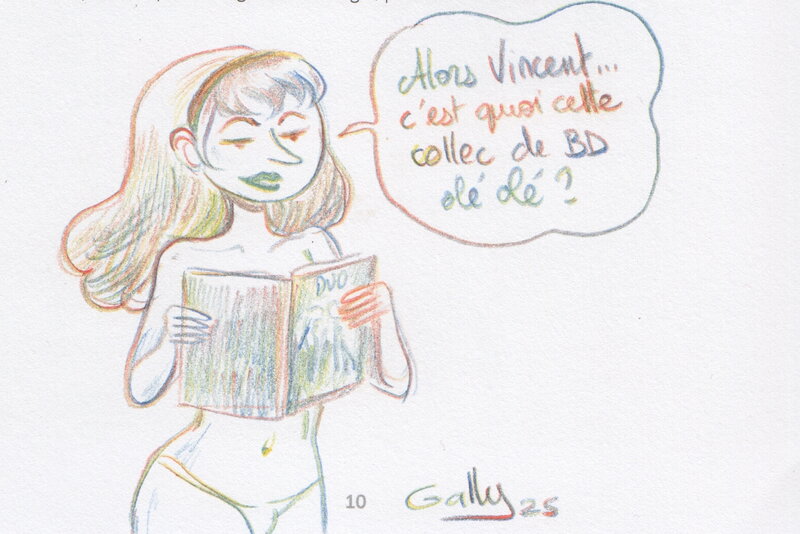 Alors Vincent...
c'est quoi cette
collec de BD
olé olé ?
DUO
10
Gally 25